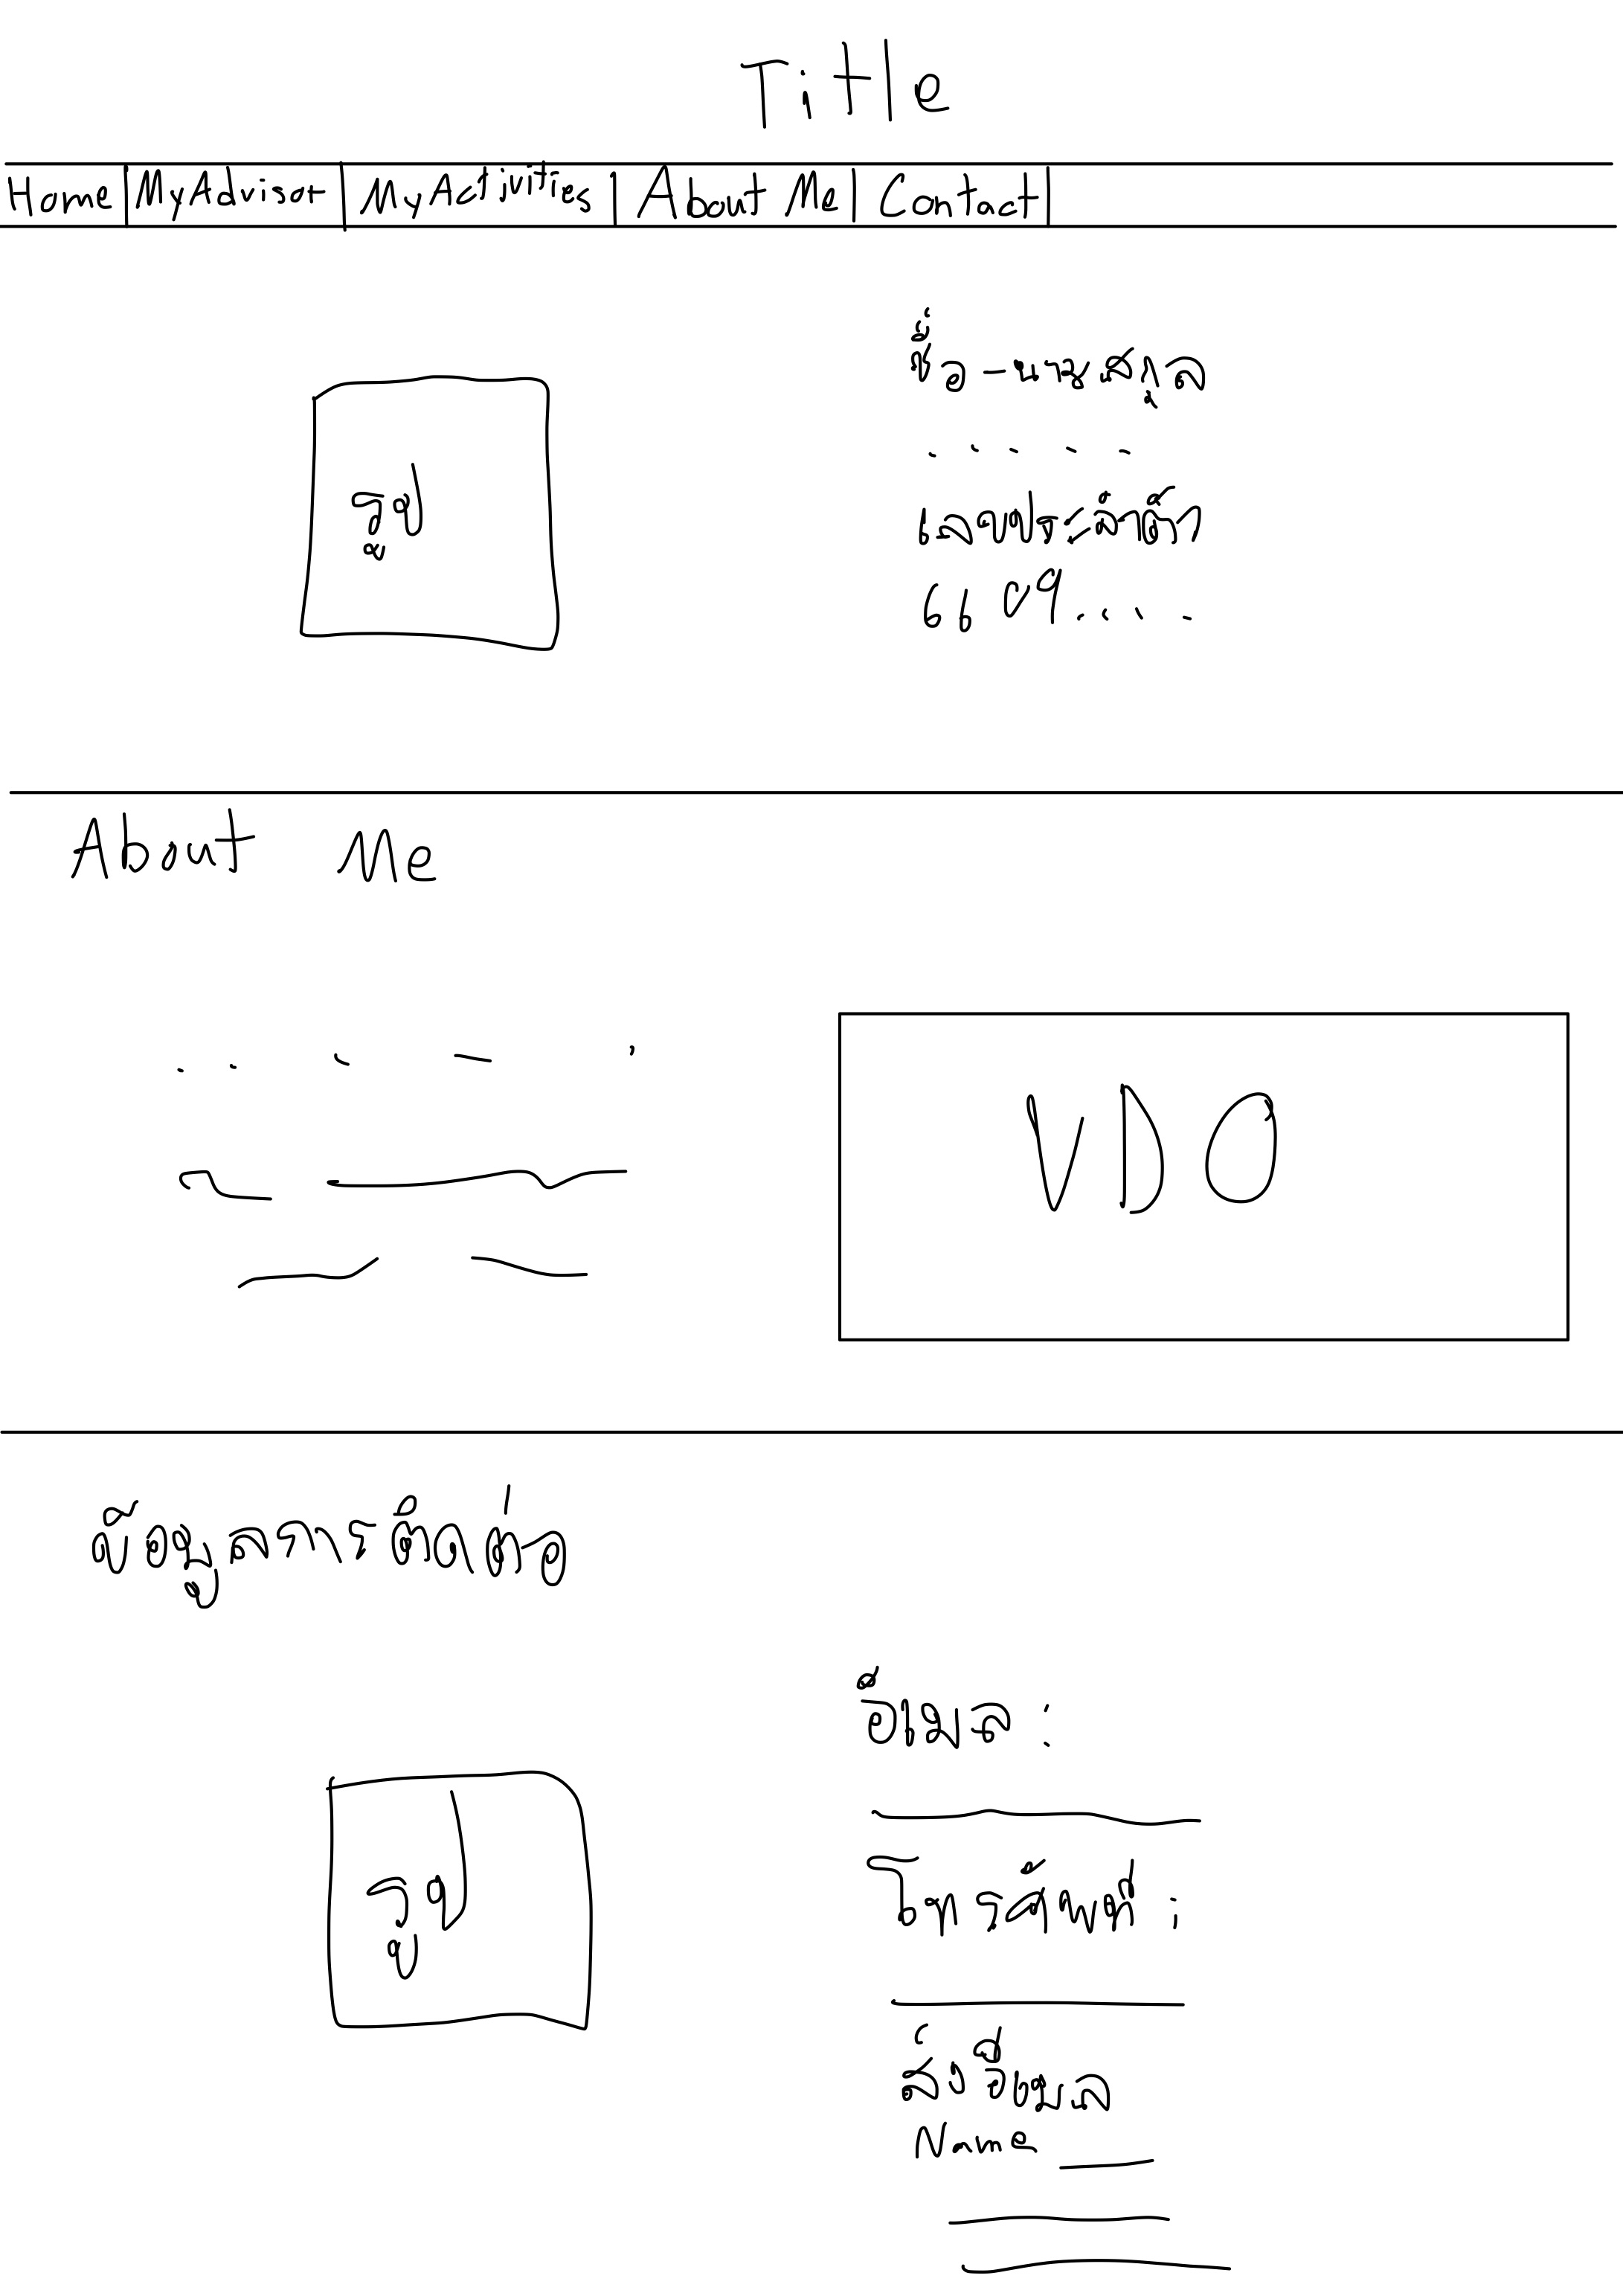 Title
Home My Advisor My Activities About Me Contact
ชื่อ - นามสกุล
. . . . .
เลขประจำตัว
6609....
About Me
VDO
รูป
ข้อมูลการติดต่อ
อีเมล :
โทรศัพท์ :
รูป
ส่งอีเมล
Name